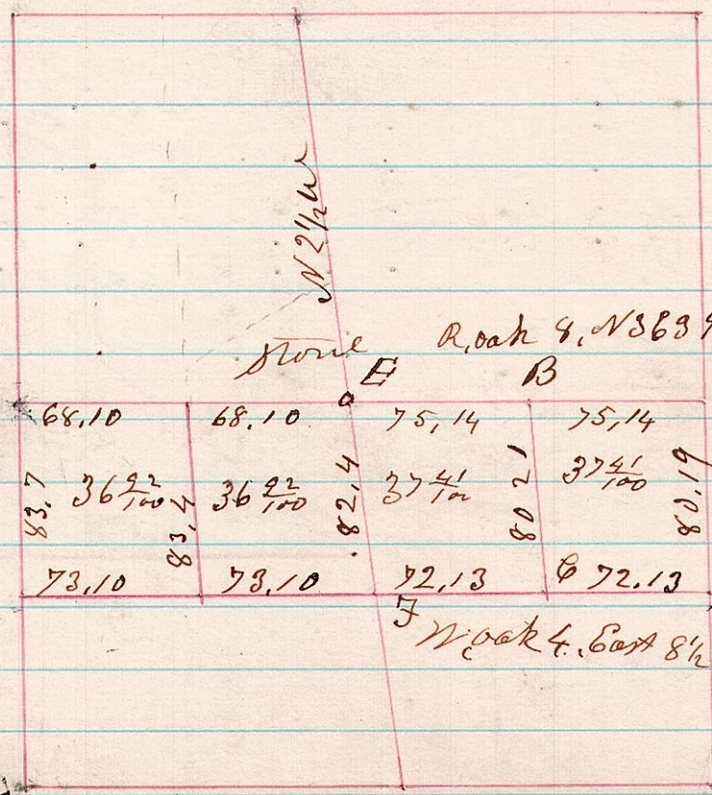 N 2 1/2 W
R, oak 8, N36 39
Stone E B
68,10 68.10 75,14 75,14
83.7 36 92/100 83,4 36 92/100 82.4 37 41/100 80 21 37 41/100 80.19
73,10 73,10 72,13 C 72.13
F
W, oak 4. East 8 1/2